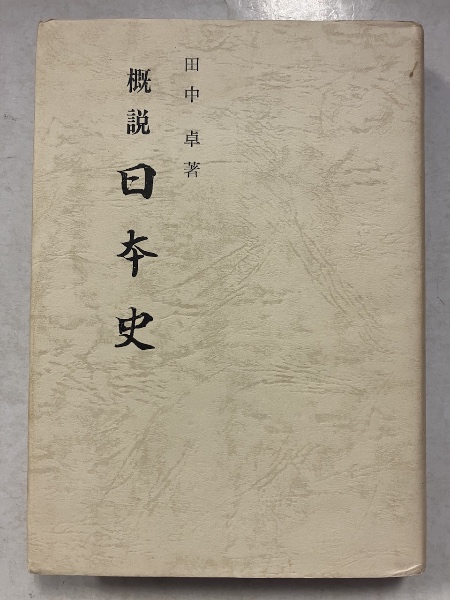 田中卓著
概説日本史